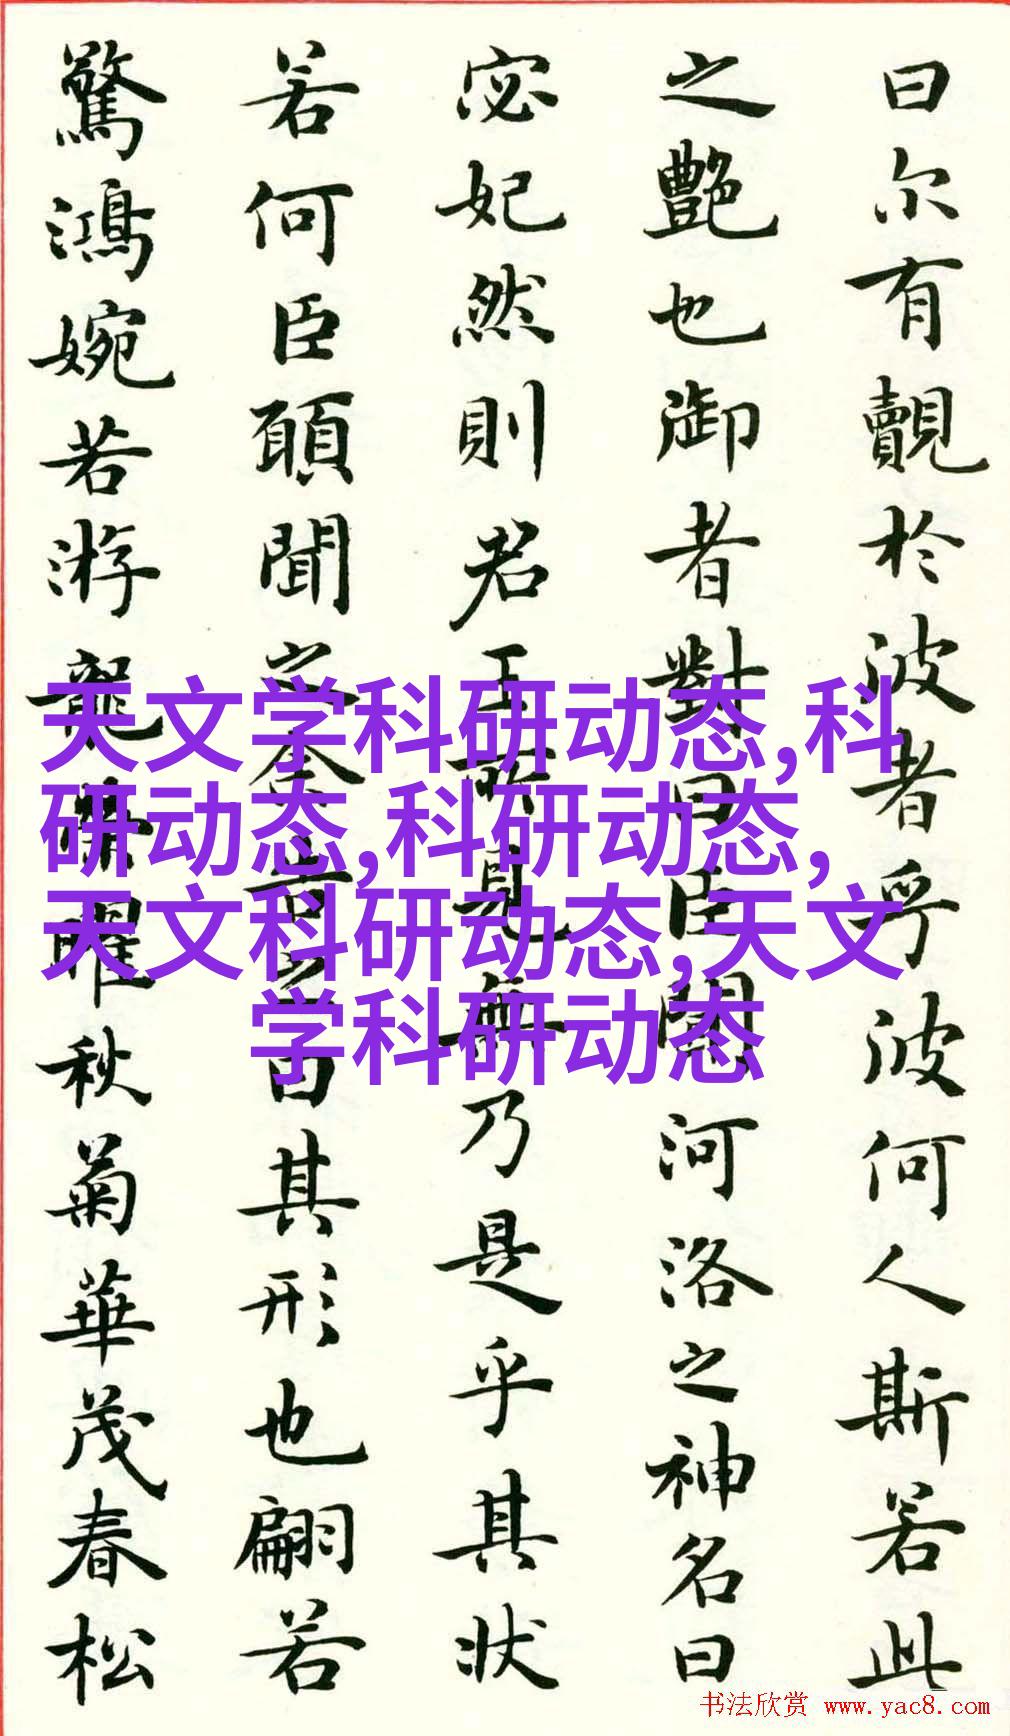 曰尔有覿於波者乎波何人斯若此
之艷也御者對曰臣聞河洛之神名曰
宓妃然則君王所見無乃是乎其状
若何臣願聞之余告之曰其形也翩若
驚鴻婉若游龍榮曜秋菊華茂春松
天文学科研动态,科
研动态,科研动态,
天文科研动态,天文
学科研动态
书法欣赏 www.yac8.com